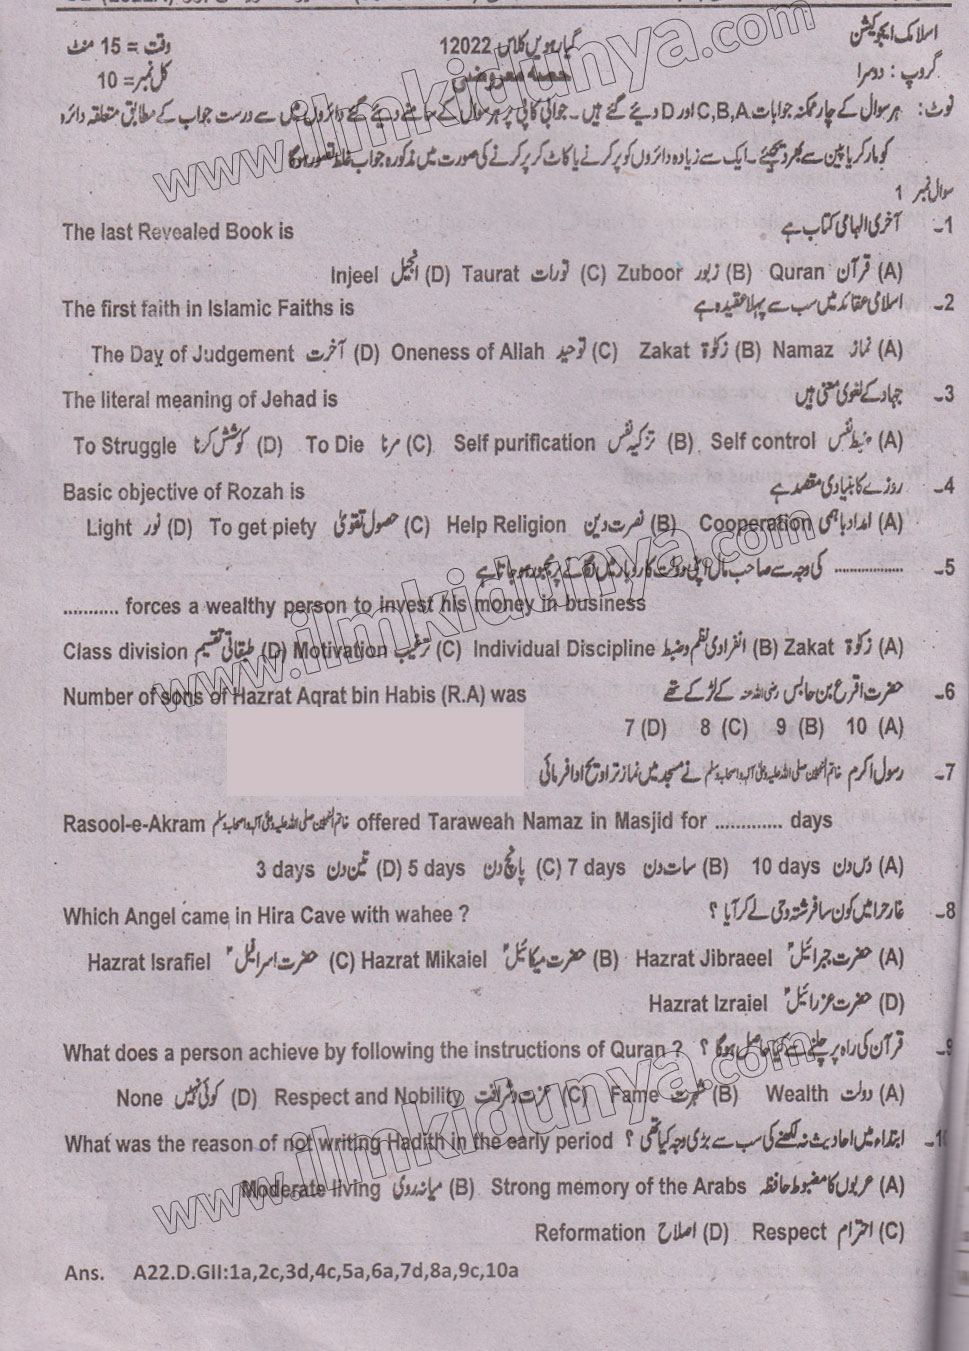 اسلامک ایجوکیشن گیارہویں کلاس 12022 وقت = 15 منٹ
گروپ : دوسرا حصہ معروضی کل نمبر= 10
نوٹ: ہر سوال کے چار ممکنہ جوابات C,B,A اور D دیئے گئے ہیں ۔ جوابی کاپی پر ہر سوال کے سامنے دیئے گئے دائروں میں سے درست جواب کے مطابق متعلقہ دائرہ
کو مارکر یا پین سے بھر دیجئے ۔ ایک سے زیادہ دائروں کو پر کرنے یا کاٹ کر پر کرنے کی صورت میں مذکورہ جواب غلط تصور ہوگا
سوال نمبر 1
1۔ آخری الہامی کتاب ہے The last Revealed Book is
(A) قرآن Quran (B) زبور Zuboor (C) تورات Taurat (D) انجیل Injeel
2۔ اسلامی عقائد میں سب سے پہلا عقیدہ ہے The first faith in Islamic Faiths is
(A) نماز Namaz (B) زکوٰۃ Zakat (C) توحید Oneness of Allah (D) آخرت The Day of Judgement
3۔ جہاد کے لغوی معنی ہیں The literal meaning of Jehad is
(A) ضبط نفس Self control (B) تزکیہ نفس Self purification (C) مرنا To Die (D) کوشش کرنا To Struggle
4۔ روزے کا بنیادی مقصد ہے Basic objective of Rozah is
(A) امداد باہمی Cooperation (B) نصرت دین Help Religion (C) حصول تقویٰ To get piety (D) نور Light
5۔ ................. کی وجہ سے صاحب مال اپنی دولت کاروبار میں لگانے پر مجبور ہو جاتا ہے
........... forces a wealthy person to invest his money in business
(A) زکوٰۃ Zakat (B) انفرادی نظم وضبط Individual Discipline (C) ترغیب Motivation (D) طبقاتی تقسیم Class division
6۔ حضرت اقرع بن حابس رضی اللہ عنہ کے لڑکے تھے Number of sons of Hazrat Aqrat bin Habis (R.A) was
(A) 10 (B) 9 (C) 8 (D) 7
7۔ رسول اکرم خاتم النبیین صلی اللہ علیہ وعلیٰ آلہ واصحابہ وسلم نے مسجد میں نماز تراویح ادا فرمائی
Rasool-e-Akram خاتم النبیین صلی اللہ علیہ وعلیٰ آلہ واصحابہ وسلم offered Taraweah Namaz in Masjid for ............. days
(A) دس دن 10 days (B) سات دن 7 days (C) پانچ دن 5 days (D) تین دن 3 days
8۔ غار حرا میں کون سا فرشتہ وحی لے کر آیا ؟ Which Angel came in Hira Cave with wahee ?
(A) حضرت جبرائیل ؑ Hazrat Jibraeel (B) حضرت میکائیل ؑ Hazrat Mikaiel (C) حضرت اسرافیل ؑ Hazrat Israfiel
(D) حضرت عزرائیل ؑ Hazrat Izraiel
9۔ قرآن کی راہ پر چلنے سے کیا حاصل ہوگا ؟ What does a person achieve by following the instructions of Quran ?
(A) دولت Wealth (B) شہرت Fame (C) عزت وشرافت Respect and Nobility (D) کوئی نہیں None
10۔ ابتداء میں احادیث نہ لکھنے کی سب سے بڑی وجہ کیا تھی ؟ What was the reason of not writing Hadith in the early period
(A) عربوں کا مضبوط حافظہ Strong memory of the Arabs (B) میانہ روی Moderate living
(C) احترام Respect (D) اصلاح Reformation
Ans. A22.D.GII:1a,2c,3d,4c,5a,6a,7d,8a,9c,10a
www.ilmkidunya.com
www.ilmkidunya.com
www.ilmkidunya.com